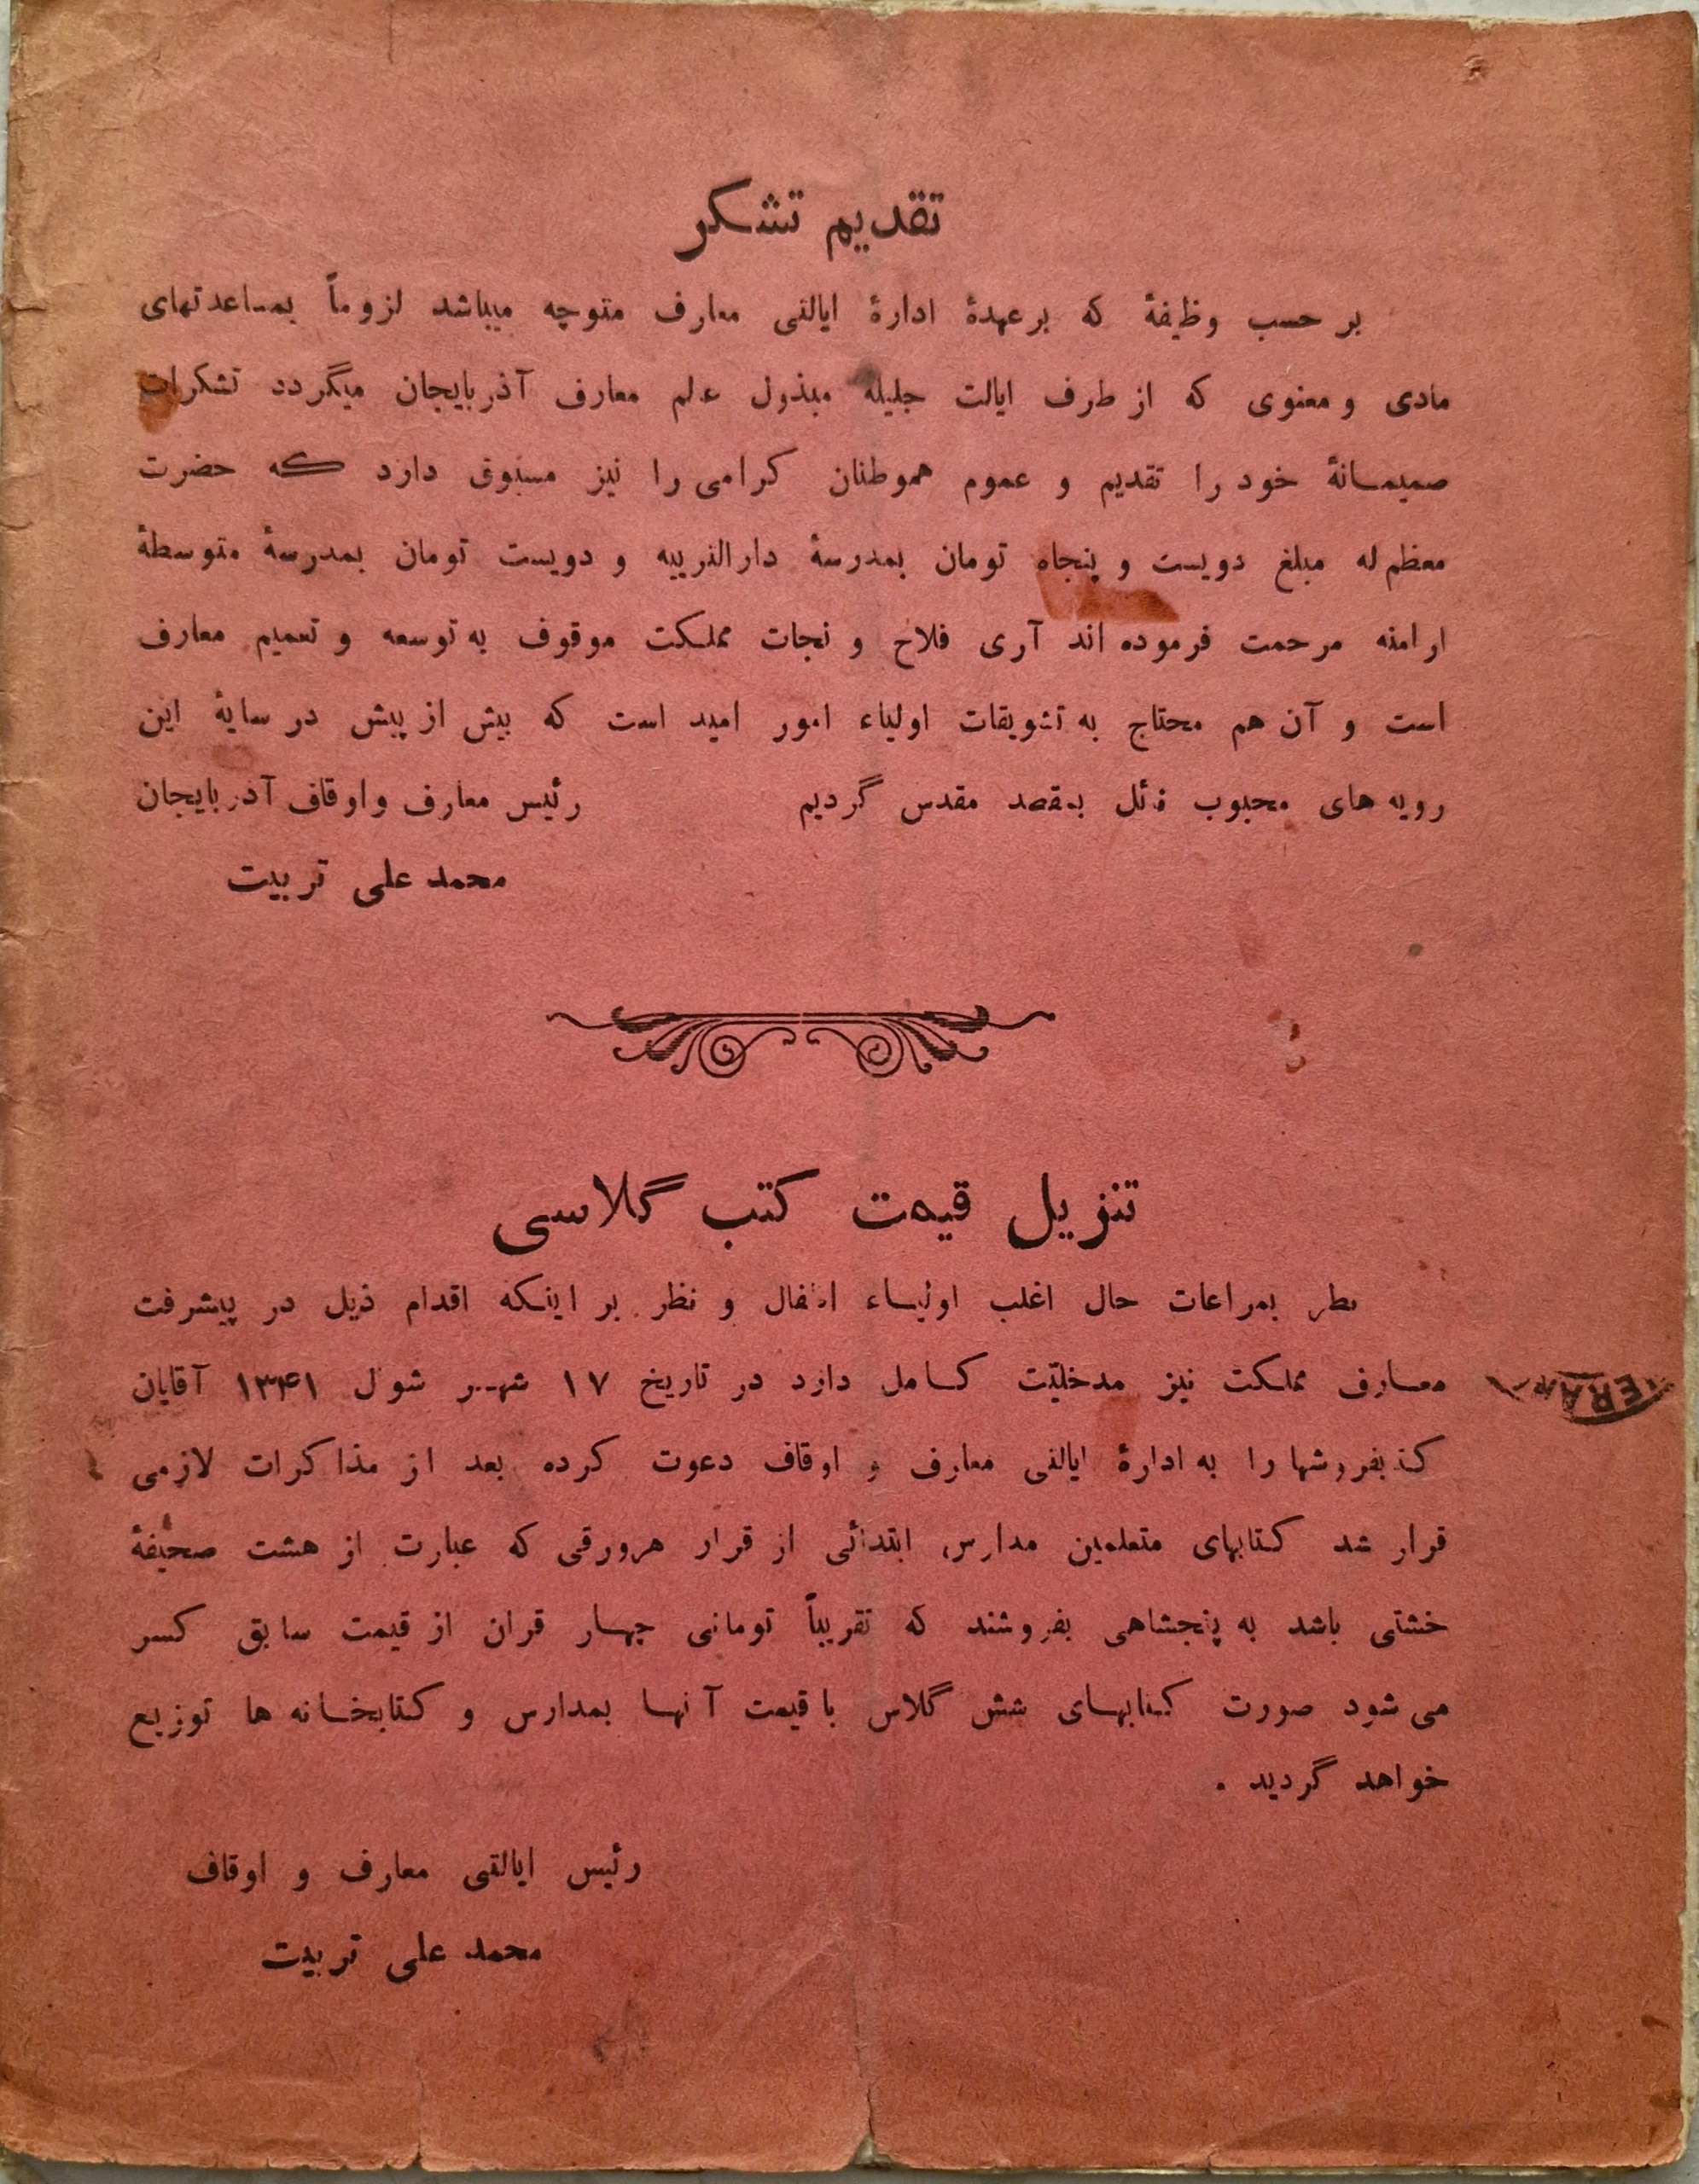 تقدیم تشکر
بر حسب وظیفهٔ که برعهدهٔ ادارهٔ ایالتی معارف متوجه میباشد لزوماً بمساعدتهای
مادی و معنوی که از طرف ایالت جلیله مبذول علم معارف آذربایجان میگردد تشکرات
صمیمانهٔ خود را تقدیم و عموم هموطنان گرامی را نیز مسبوق دارد که حضرت
معظم له مبلغ دویست و پنجاه تومان بمدرسهٔ دارالتربیه و دویست تومان بمدرسهٔ متوسطهٔ
ارامنه مرحمت فرموده اند آری فلاح و نجات مملکت موقوف به توسعه و تعمیم معارف
است و آن هم محتاج به تشویقات اولیاء امور امید است که بیش از پیش در سایهٔ این
رویه های محبوب نائل بمقصد مقدس گردیم رئیس معارف و اوقاف آذربایجان
محمد علی تربیت
تنزیل قیمت کتب گلاسی
نظر بمراعات حال اغلب اولیاء اطفال و نظر بر اینکه اقدام ذیل در پیشرفت
معارف مملکت نیز مدخلیّت کامل دارد در تاریخ ۱۷ شهر شوال ۱۳۴۱ آقایان
کتبفروشها را به ادارهٔ ایالتی معارف و اوقاف دعوت کرده بعد از مذاکرات لازمی
قرار شد کتابهای متعلمین مدارس ابتدائی از قرار هرورقی که عبارت از هشت صحیفهٔ
خشتی باشد به پنجشاهی بفروشند که تقریباً تومانی چهار قران از قیمت سابق کسر
می شود صورت کتابهای شش گلاس با قیمت آنها بمدارس و کتابخانه ها توزیع
خواهد گردید .
رئیس ایالتی معارف و اوقاف
محمد علی تربیت